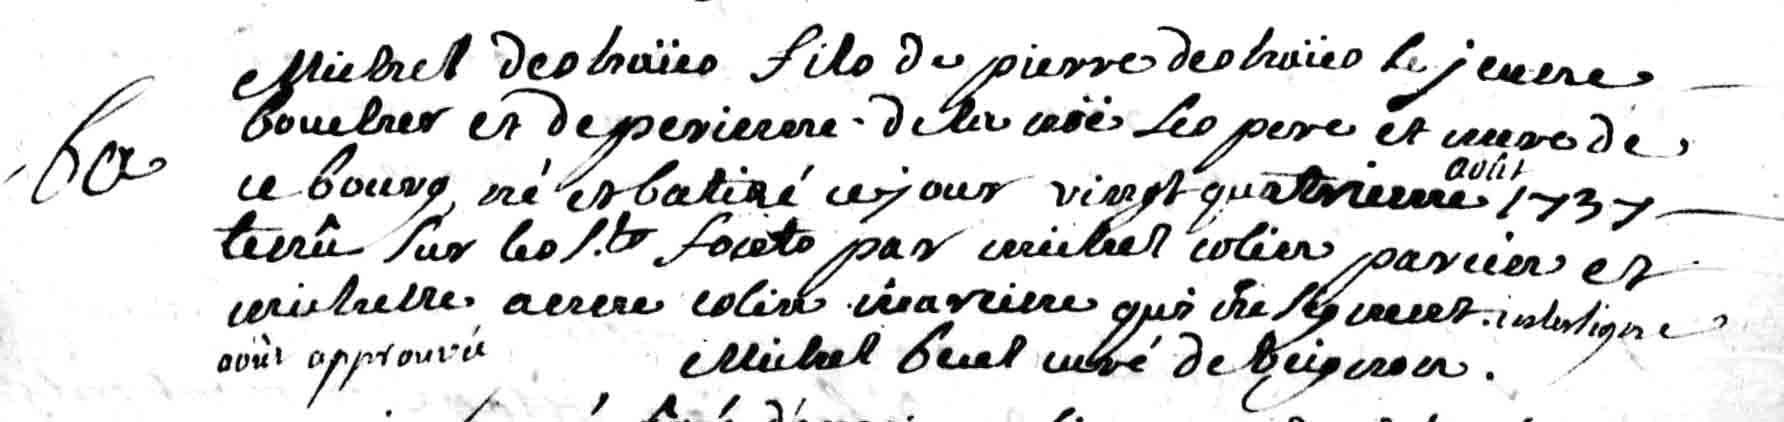 Michel deshaïes fils de pierre deshaïes le jeune
boucher et de perienne de la noë les pere et mere de
ba
ce bourg, né et batizé ce jour vingt quatrieme août 1737
tenû sur les s.ts fonts par michel colin parein et
michelle anne colin mareine qui ne signent. interligne
août approuvé Michel huet curé de